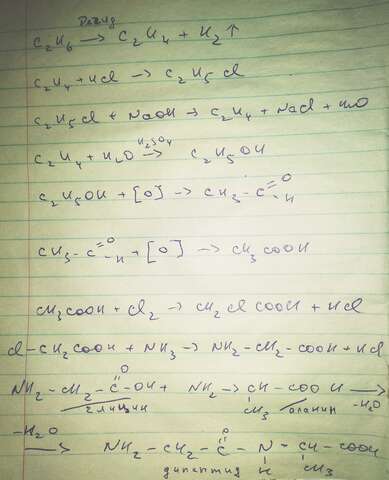 Дегид
C2H6 → C2H4 + H2↑
C2H4 + HCl → C2H5Cl
C2H5Cl + NaOH → C2H4 + NaCl + H2O
C2H4 + H2O H2SO4→ C2H5OH
C2H5OH + [O] → CH3-C=O-H
CH3-C=O-H + [O] → CH3COOH
CH3COOH + Cl2 → CH2ClCOOH + HCl
Cl-CH2COOH + NH3 → NH2-CH2-COOH + HCl
NH2-CH2-C=O-OH + NH2→CH-COOH → -H2O
глицин CH3 аланин
-H2O → NH2-CH2-C=O-N-CH-COOH
дипептид H CH3